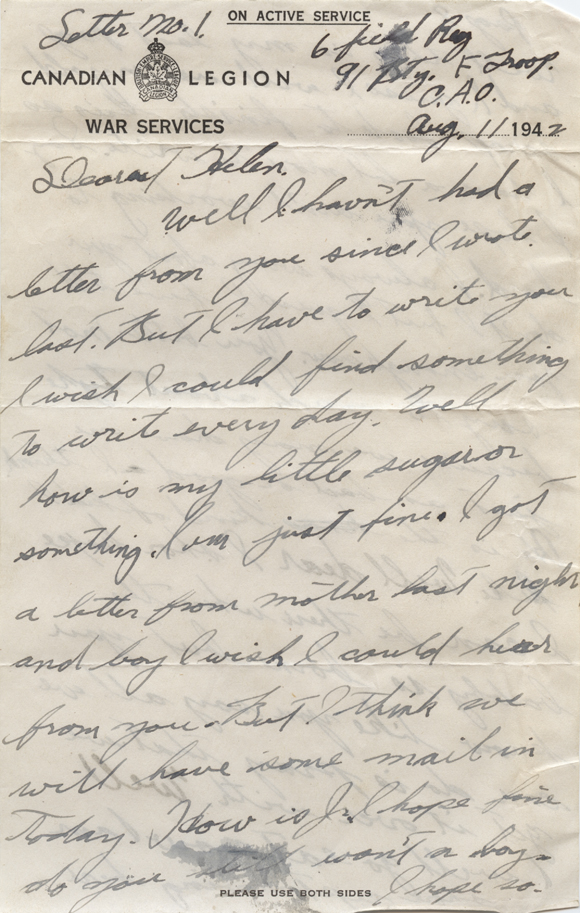 Letter No. 1.
ON ACTIVE SERVICE
6 field Reg
91 Bty. F Troop.
CANADIAN LEGION
C.A.O.
WAR SERVICES
Aug, 11 1942
Dearest Helen.
Well I havn't had a
letter from you since I wrote
last. But I have to write you
I wish I could find something
to write every day. Well
how is my little sugar or
something. I am just fine. I got
a letter from mother last night
and boy I wish I could hear
from you. But I think we
will have some mail in
Today. How is Jr. I hope fine
do you still won't a boy.
I hope so.
PLEASE USE BOTH SIDES